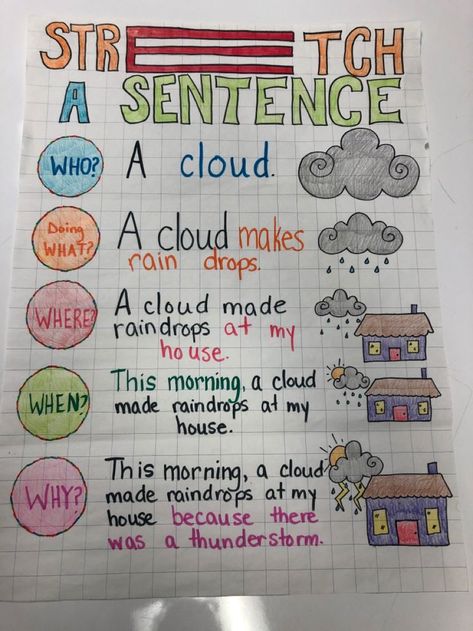 STRETCH
A SENTENCE
WHO?
A cloud.
Doing
WHAT?
A cloud makes
rain drops.
WHERE?
A cloud made
raindrops at my
house.
WHEN?
This morning, a cloud
made raindrops at my
house.
WHY?
This morning, a cloud
made raindrops at my
house because there
was a thunderstorm.